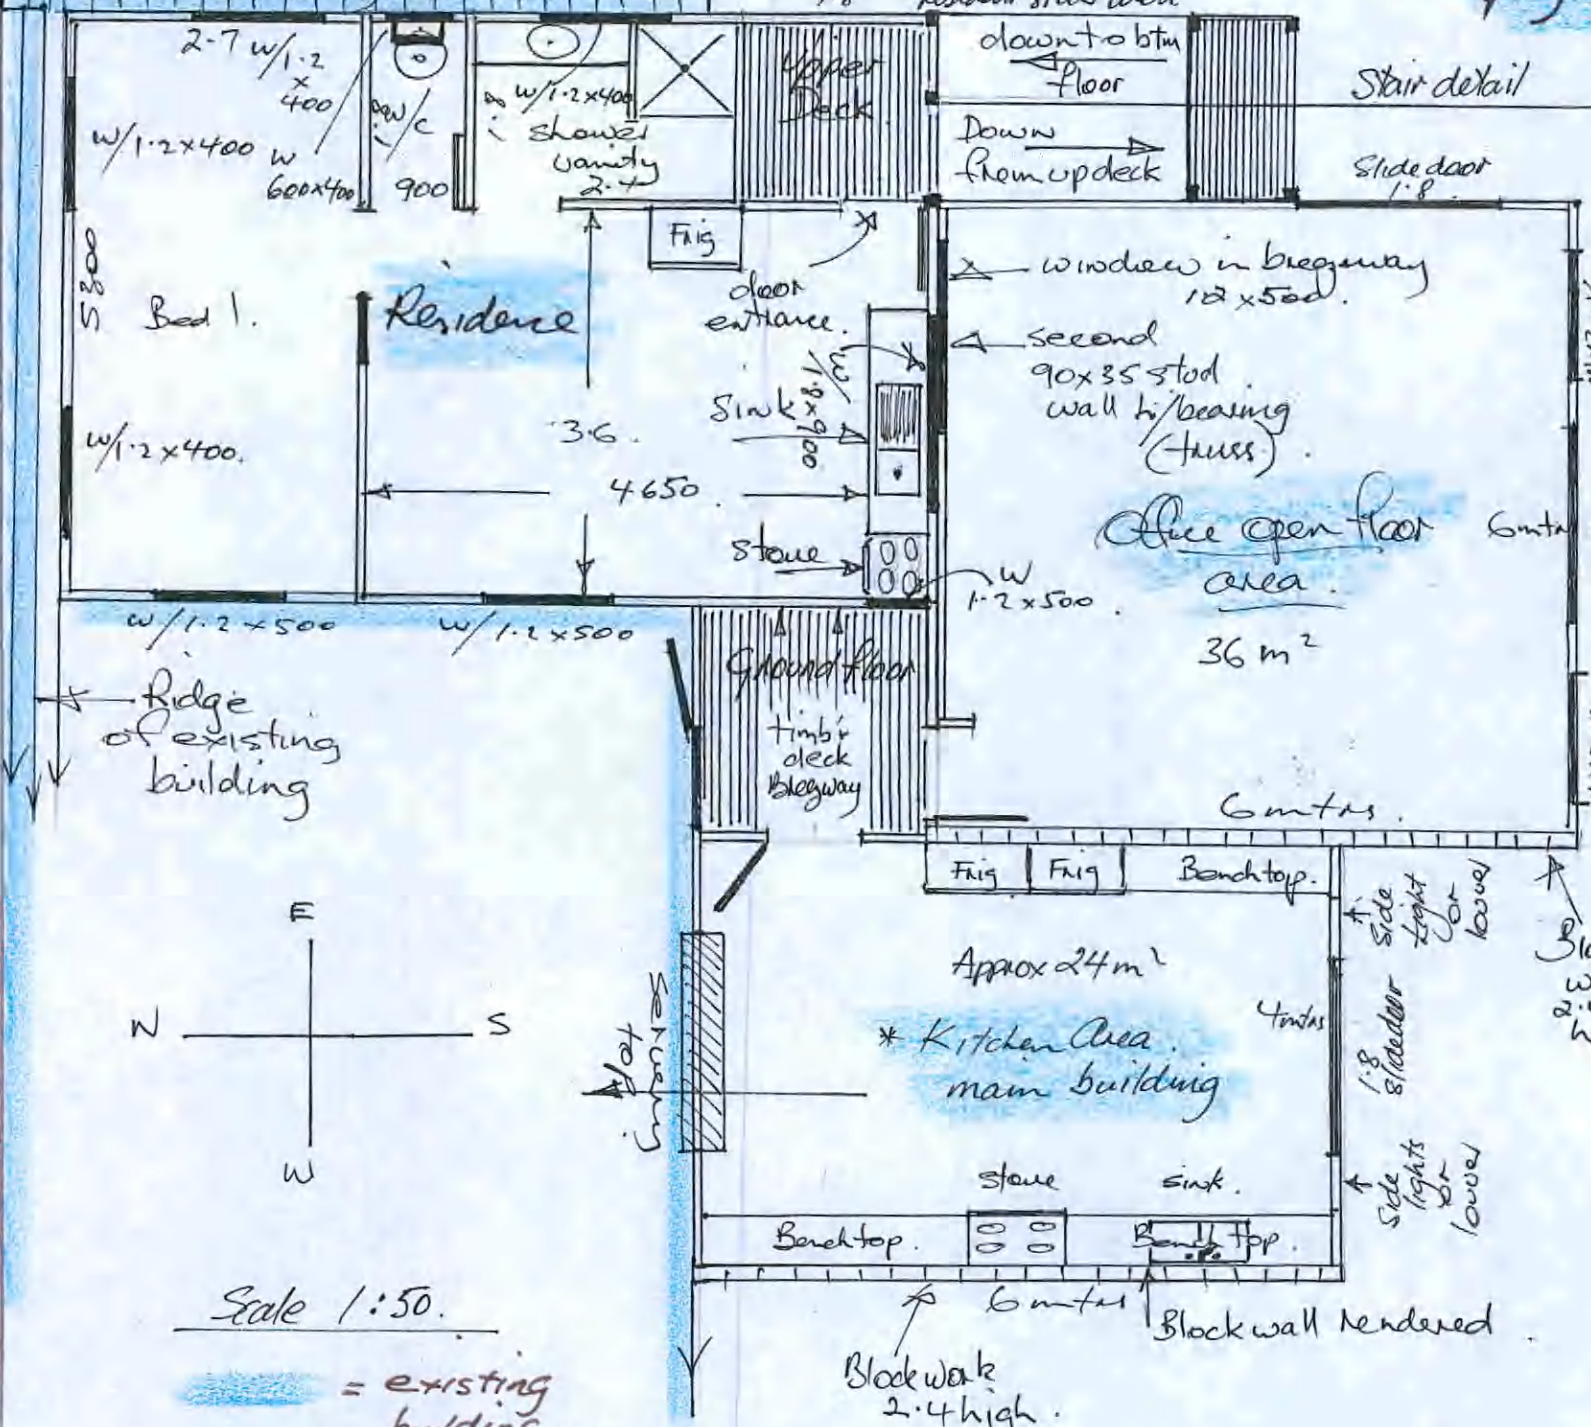 2.7 w/1.2
x
400
w/1.2x400
w
600x400
1.8
w/c
900
1.8
w/1.2x400
shower
vanity
2.4
Upper
Deck
down to btm
floor
Down
from up deck
Stair detail
Slide door
1.8
5800
Bed 1.
Residence
Frig
door
entrance.
window in bregeway
12x500.
second
90x35 stud
wall h/bearing
(truss).
Sink
w/
1.8x900
3.6.
4.650
w/1.2x400.
Stove
w
1.2x500.
Office open floor
area.
36 m²
6mtrs
w/1.2x500
w/1.2x500
Ridge
of existing
building
Ground floor
timb'r
deck
Bregway
6mtrs.
Frig
Frig
Benchtop.
Side
Light
or
louver
E
N
S
W
Serving
Approx 24m²
* Kitchen Area.
main building
4mtrs
1.8
slidedor
Side
lights
or
louver
stove
sink.
Benchtop.
Bench top.
6mtrs
Blockwall rendered.
Blockwork
2.4 high.
Scale 1:50.
= existing
building